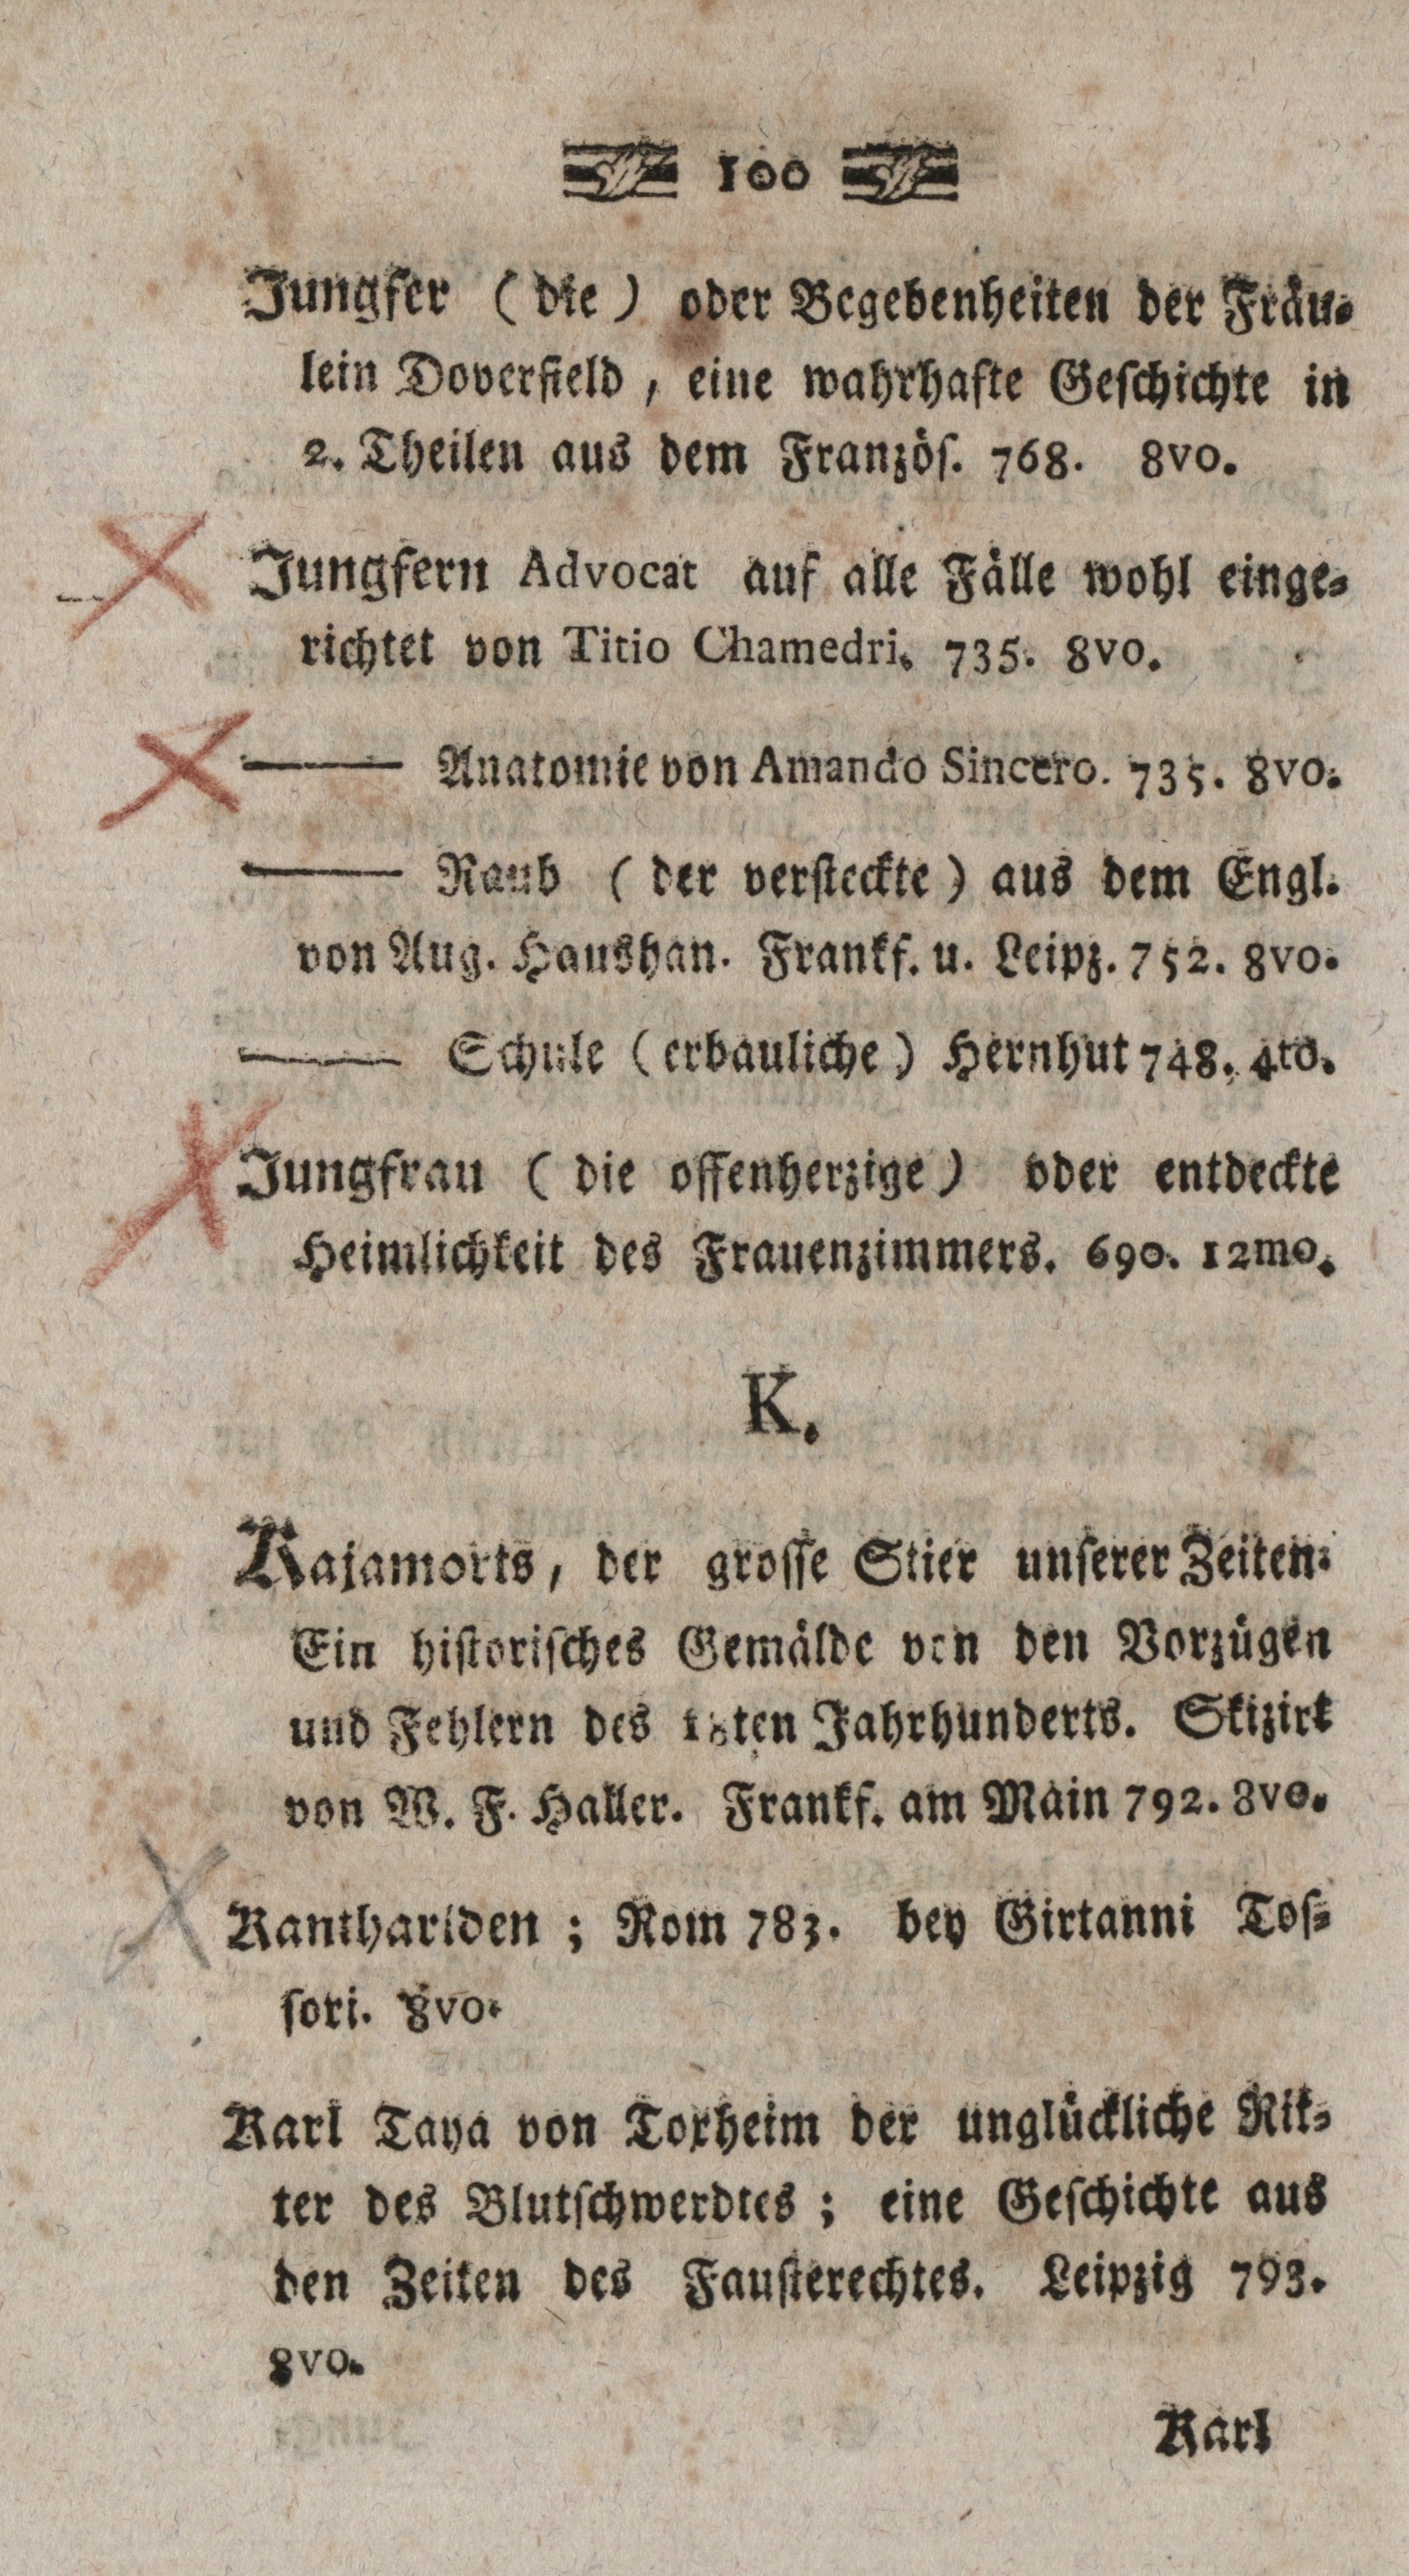 100
Jungfer (die) oder Begebenheiten der Fräu-
lein Doverfield, eine wahrhafte Geschichte in
2. Theilen aus dem Französ. 768. 8vo.
Jungfern Advocat auf alle Fälle wohl einge-
richtet von Titio Chamedri. 735. 8vo.
—— Anatomie von Amando Sincero. 735. 8vo.
—— Raub (der versteckte) aus dem Engl.
von Aug. Haushan. Frankf. u. Leipz. 752. 8vo.
—— Schule (erbauliche) Hernhut 748. 4to.
Jungfrau (die offenherzige) oder entdeckte
Heimlichkeit des Frauenzimmers. 690. 12mo.
K.
Kajamorts, der grosse Stier unserer Zeiten:
Ein historisches Gemälde von den Vorzügen
und Fehlern des 18ten Jahrhunderts. Skizirt
von W. F. Haller. Frankf. am Main 792. 8vo.
Kanthariden; Rom 783. bey Girtanni Tos-
sori. 8vo.
Karl Taya von Torheim der unglückliche Rit-
ter des Blutschwerdtes; eine Geschichte aus
den Zeiten des Fausterechtes. Leipzig 793.
8vo.
Karl